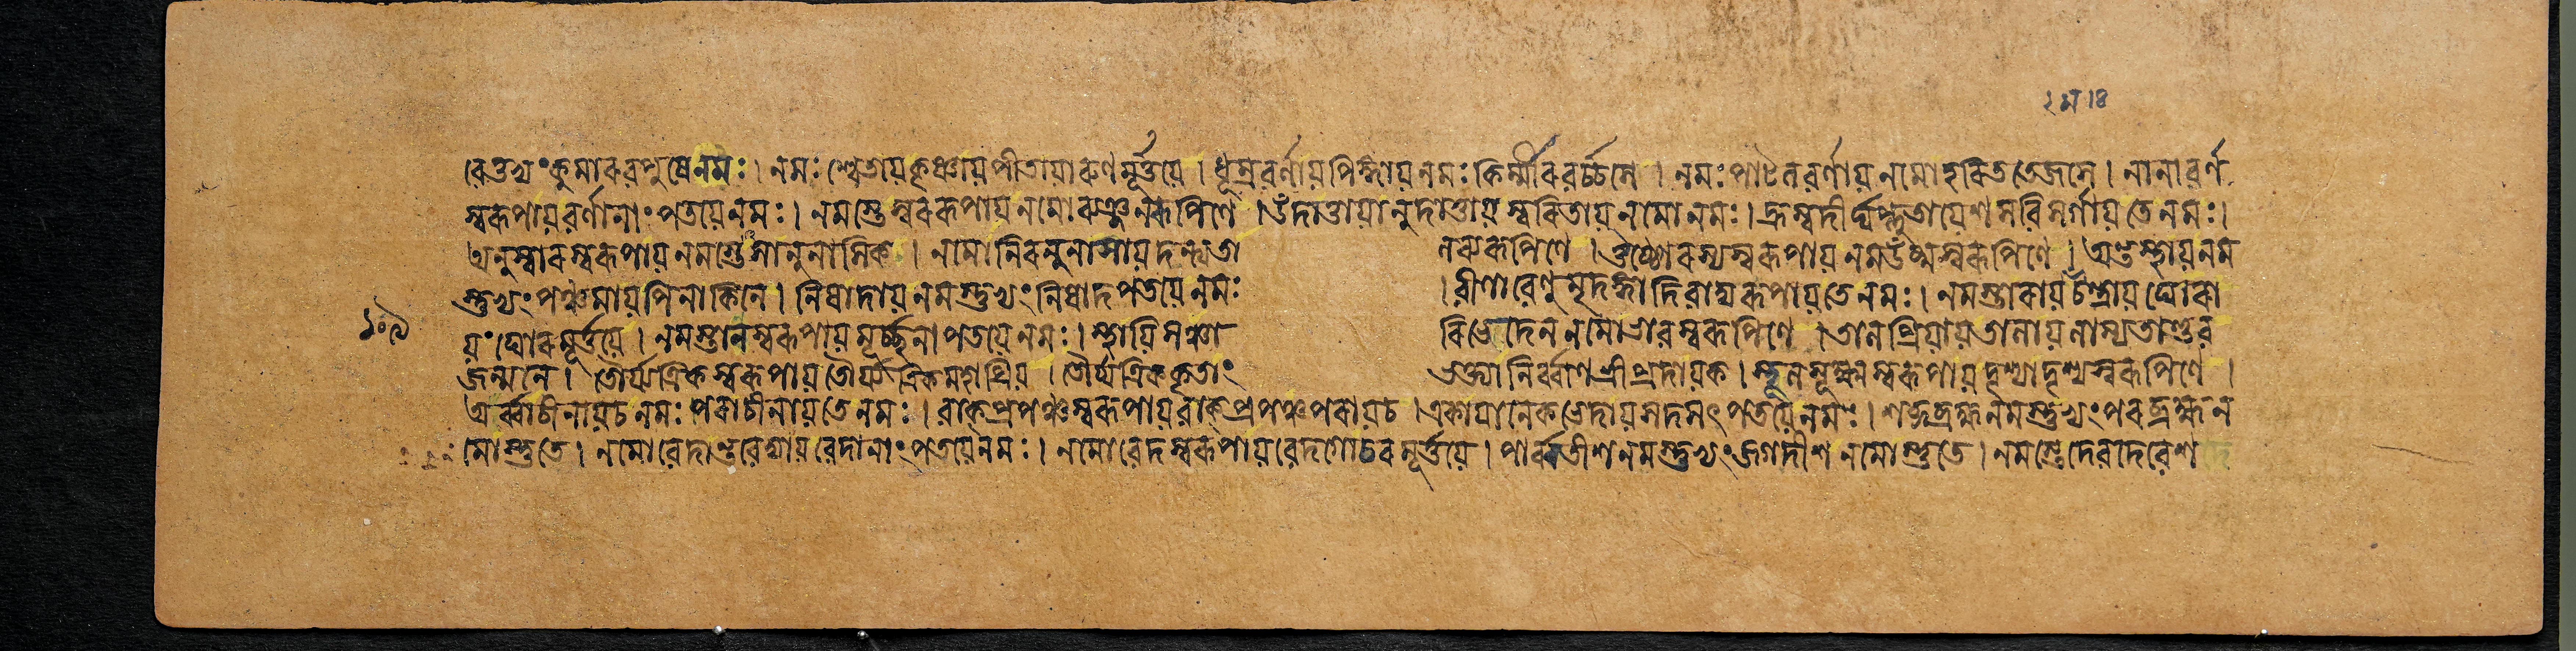 ১ম ১৪
বেতুভ্যং কুমারবপুষে নমঃ। নমঃ শ্বেতায় কৃষ্ণায় পীতায়ারুণমূর্ত্তয়ে। ধূম্রবর্ণায় পিঙ্গায় নমঃ কির্ম্মীরবর্চ্চসে। নমঃ পাটলবর্ণায় নমো হরিততেজসে। নানাবর্ণ
স্বরূপায় বর্ণানাং পতয়ে নমঃ। নমস্তে স্বররূপায় নমো ব্যঞ্জনরূপিণে। উদাত্তায়ানুদাত্তায় স্বরিতায় নমো নমঃ। হ্রস্বদীর্ঘপ্লুতায়েশ সবিসর্গায় তে নমঃ।
অনুস্বারস্বরূপায় নমস্তে সানুনাসিক। নমো নিরনুনাসায় দন্ত্যতা লব্যরূপিণে। ওষ্ঠ্যোরস্যস্বরূপায় নম উষ্মস্বরূপিণে। অন্তস্থায় নম
স্তুভ্যং পঞ্চমায় পিনাকিনে। নিষাদায় নমস্তুভ্যং নিষাদপতয়ে নমঃ। বীণাবেণুমৃদঙ্গাদিবাদ্যরূপায় তে নমঃ। নমস্তারায় মন্দ্রায় ঘোরা
১০৯
য়ং ঘোরমূর্ত্তয়ে। নমস্তানস্বরূপায় মূর্চ্ছনাপতয়ে নমঃ। স্থায়িসঞ্চা রিভেদেন নমো ভাবস্বরূপিণে। তালপ্রিয়ায় তালায় লাস্যতাণ্ডব
জন্মনে। তৌর্য্যত্রিকস্বরূপায় তৌর্য্যত্রিকমহাপ্রিয়। তৌর্য্যত্রিককৃতাং ভক্ত্যা নির্ব্বাণশ্রীপ্রদায়ক। স্থূলসূক্ষ্মস্বরূপায় দৃশ্যাদৃশ্যস্বরূপিণে।
অর্ব্বাচীনায় চ নমঃ পরাচীনায় তে নমঃ। বাক্প্রপঞ্চস্বরূপায় বাক্প্রপঞ্চপরায় চ। একায়ানেকভেদায় সদসৎপতয়ে নমঃ। শব্দব্রহ্ম নমস্তুভ্যং পরব্রহ্ম ন
মোস্তুতে। নমো বেদান্তবেদ্যায় বেদানাং পতয়ে নমঃ। নমো বেদস্বরূপায় বেদগোচরমূর্ত্তয়ে। পার্ব্বতীশ নমস্তুভ্যং জগদীশ নমোস্তুতে। নমস্তে দেবদেবেশ দে